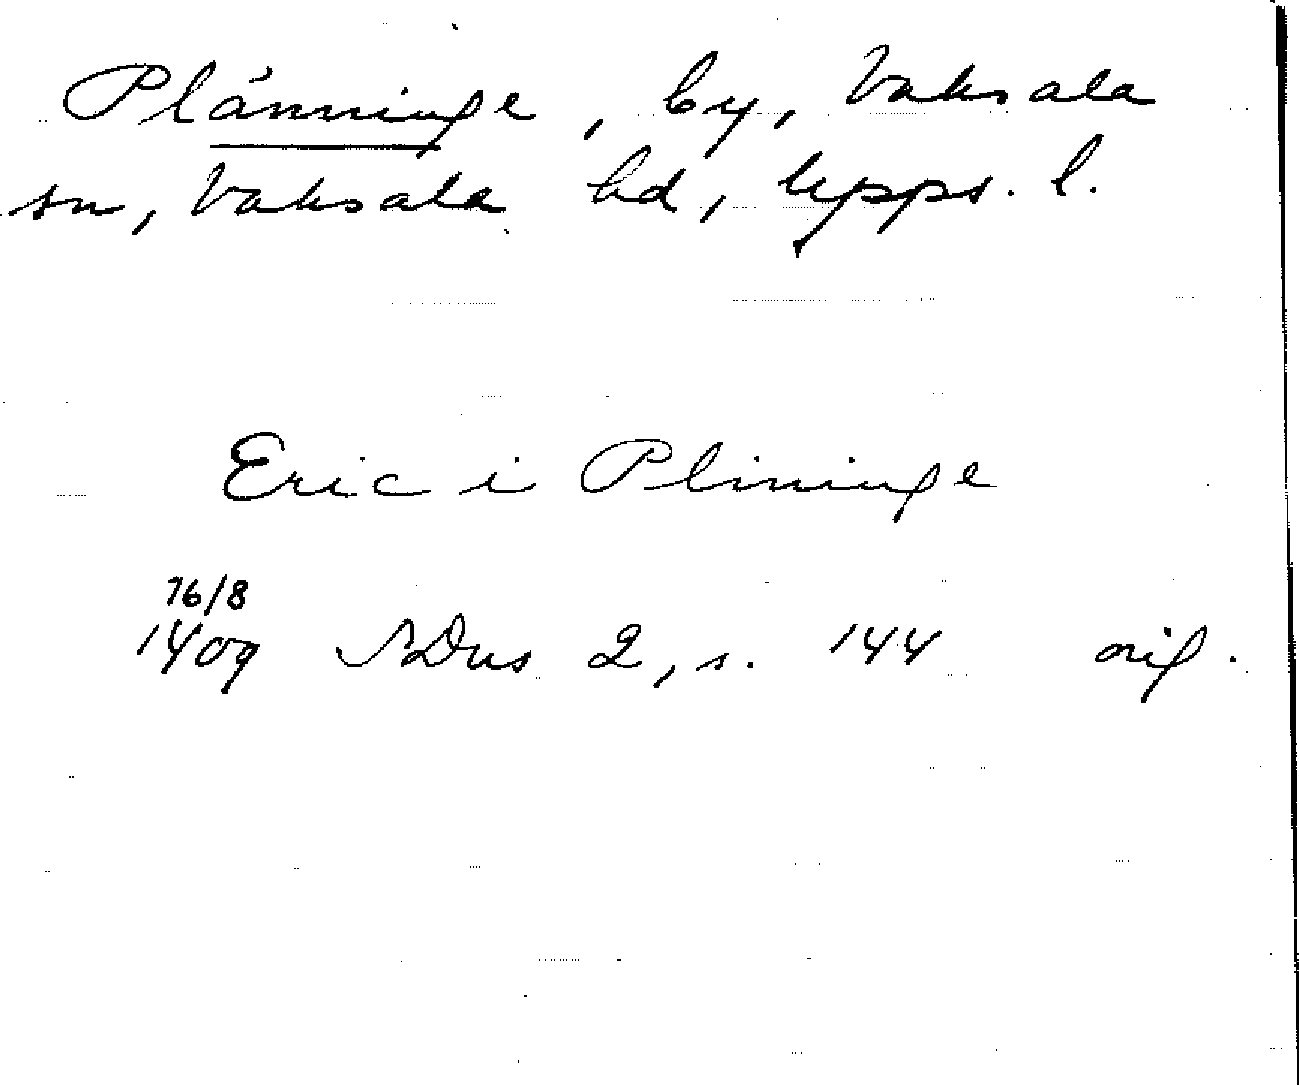 Plånninge, by, Vaksala
sn, Vaksala hd, Upps. l.
Eric i Plininge
16/8
1409 SDns 2, s. 144 orig.